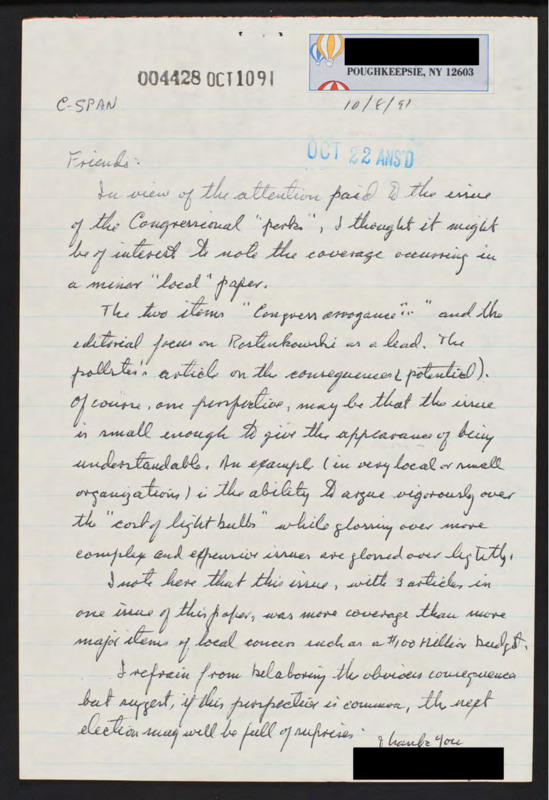 POUGHKEEPSIE, NY 12603
004428 OCT 10 91
C-SPAN
10/8/91
OCT 22 ANS'D
Friends:
In view of the attention paid to the issue
of the Congressional "perks", I thought it might
be of interest to note the coverage occurring in
a minor "local" paper.
The two items "Congress arrogance..." and the
editorial focus on Rostenkowski as a lead. The
pollster's article on the consequences (potential).
Of course, one perspective, may be that the issue
is small enough to give the appearance of being
understandable. An example (in very local or small
organizations) is the ability to argue vigorously over
the "cost of light bulbs" while glossing over more
complex and expensive issues are glossed over lightly.
I note here that this issue, with 3 articles in
one issue of this paper, was more coverage than more
major items of local concern such as a $100 Million budget.
I refrain from belaboring the obvious consequences
but suggest, if this perspective is common, the next
election may well be full of suprises.
Thank you